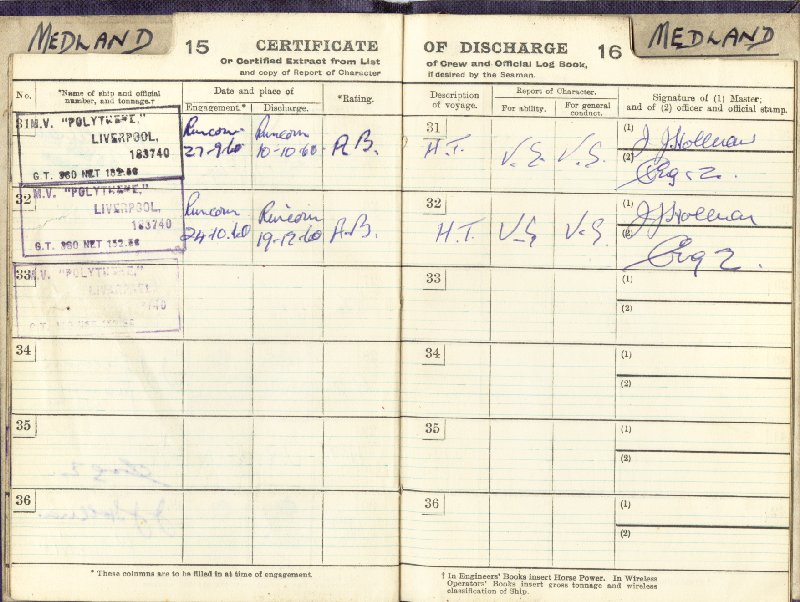 MEDLAND
15 CERTIFICATE
Or Certified Extract from List
and copy of Report of Character
No.
*Name of ship and official number, and tonnage.†
Date and place of
Engagement.*
Discharge.
*Rating.
31 M.V. "POLYTHENE,"
LIVERPOOL,
183740
G.T. 360 NET 152.86
Runcorn
27-9-60
Runcorn
10-10-60
A.B.
32 M.V. "POLYTHENE,"
LIVERPOOL,
183740
G.T. 360 NET 152.86
Runcorn
24.10.60
Runcorn
19-12-60
A.B.
33 M.V. "POLYTHENE,"
LIVERPOOL,
34
35
36
* These columns are to be filled in at time of engagement.
MEDLAND
OF DISCHARGE 16
of Crew and Official Log Book,
if desired by the Seaman.
Description of voyage.
Report of Character.
For ability.
For general conduct.
Signature of (1) Master;
and of (2) officer and official stamp.
31
H.T.
V.G.
V.G.
(1)
(2)
32
H.T.
V.G
V.G
(1)
(2)
33
(1)
(2)
34
(1)
(2)
35
(1)
(2)
36
(1)
(2)
† In Engineers' Books insert Horse Power. In Wireless
Operators' Books insert gross tonnage and wireless
classification of Ship.